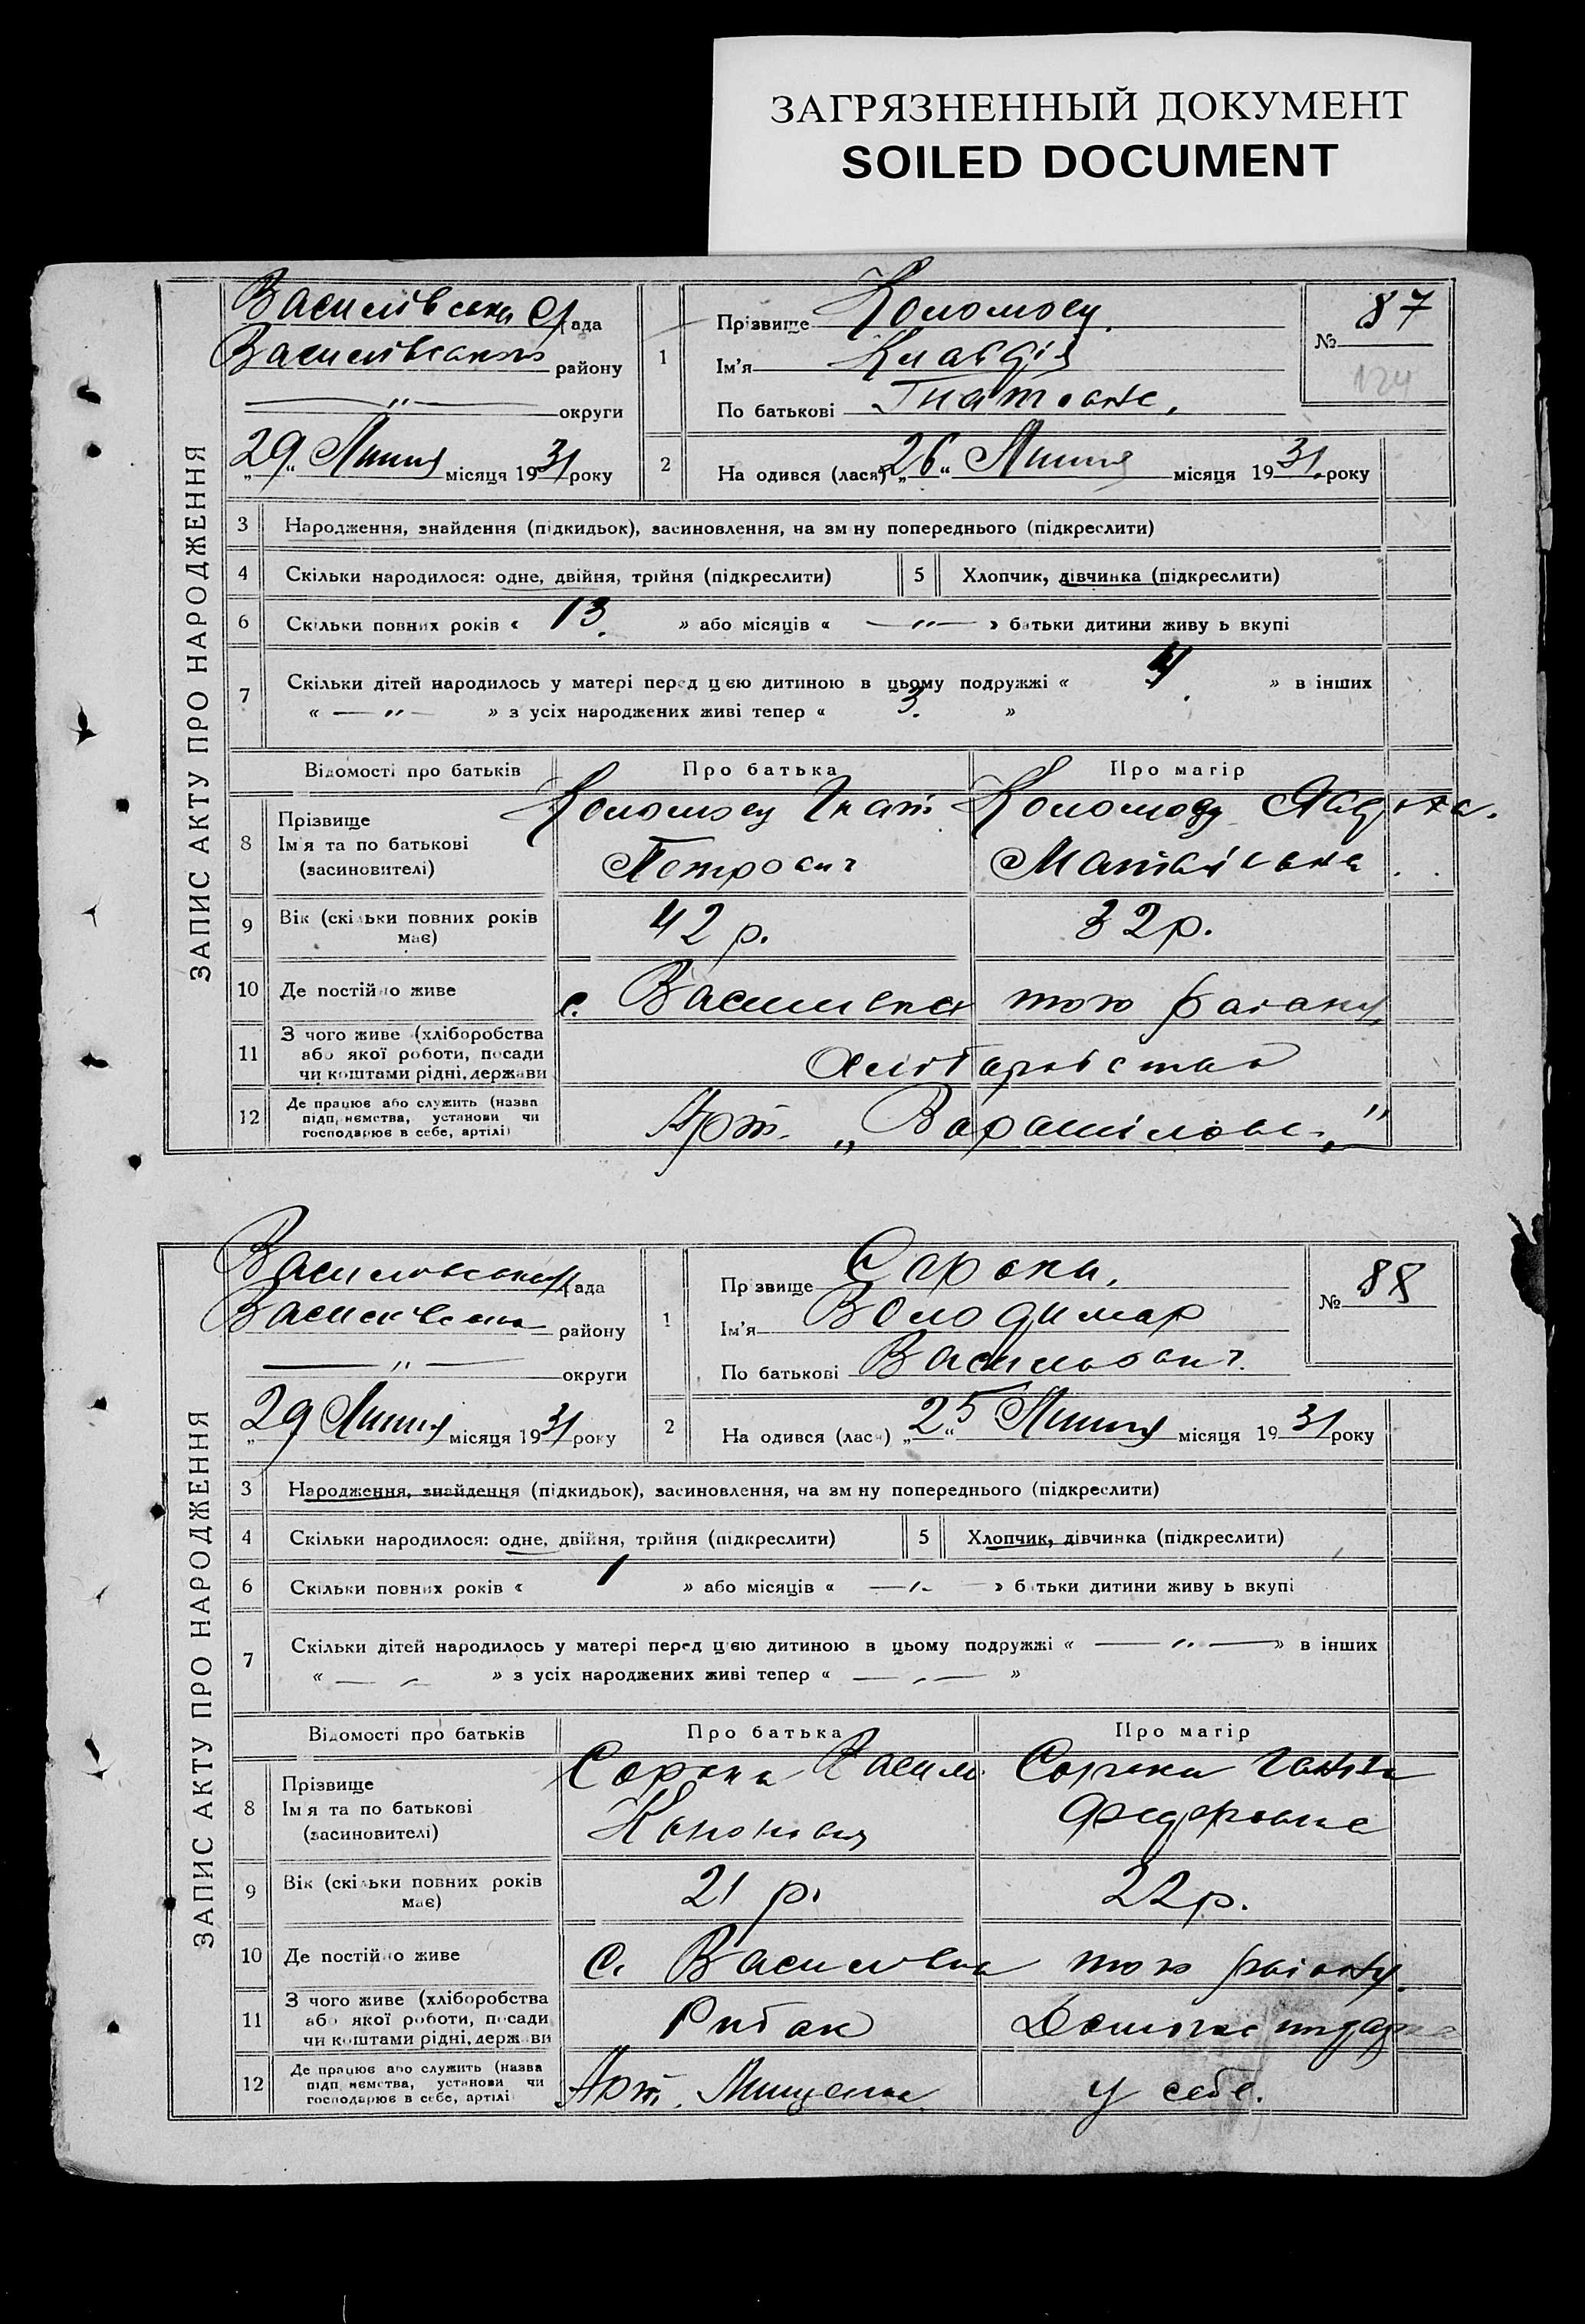 ЗАГРЯЗНЕННЫЙ ДОКУМЕНТ
SOILED DOCUMENT
ЗАПИС АКТУ ПРО НАРОДЖЕННЯ
Василівська Рада
Василівського району
—„— округи
„29“ Липня місяця 1931 року
1
Прізвище Коломоєц
Ім'я Клавдія
По батькові Гнатовна
№ 87
124
2
Народився (лася) „26“ Липня місяця 1931 року
3 Народження, знайдення (підкидьок), засиновлення, на зміну попереднього (підкреслити)
4 Скільки народилося: одне, двійня, трійня (підкреслити)
5 Хлопчик, дівчинка (підкреслити)
6 Скільки повних років « 13 » або місяців « —„— » батьки дитини живуть вкупі
7 Скільки дітей народилось у матері перед цією дитиною в цьому подружжі « 4 » в інших
« —„— » з усіх народжених живі тепер « 3. »
Відомості про батьків
Про батька
Про матір
8 Прізвище
Ім'я та по батькові
(засиновителі)
Коломоєц Гнат
Петрович
Коломоєц
Матвіївна
9 Вік (скільки повних років
має)
42 р.
32 р.
10 Де постійно живе
с. Василівка того району
11 З чого живе (хліборобства
або якої роботи, посади
чи коштами рідні, держави
Хліборобство
12 Де працює або служить (назва
підприємства, установи чи
господарює в себе, артілі)
Арт. „Ворошилова“
ЗАПИС АКТУ ПРО НАРОДЖЕННЯ
Василівська Рада
Василівськ району
—„— округи
„29 Липня місяця 1931 року
1
Прізвище Сорока
Ім'я Володимир
По батькові Васильович
№ 88
2
Народився (лася) „25“ Липня місяця 1931 року
3 Народження, знайдення (підкидьок), засиновлення, на зміну попереднього (підкреслити)
4 Скільки народилося: одне, двійня, трійня (підкреслити)
5 Хлопчик, дівчинка (підкреслити)
6 Скільки повних років « 1 » або місяців « —„— » батьки дитини живуть вкупі
7 Скільки дітей народилось у матері перед цією дитиною в цьому подружжі « —„— » в інших
« —„— » з усіх народжених живі тепер « —„— »
Відомості про батьків
Про батька
Про матір
8 Прізвище
Ім'я та по батькові
(засиновителі)
Сорока Василь
Сорока Ганна
Федоровна
9 Вік (скільки повних років
має)
21 р.
22 р.
10 Де постійно живе
С. Василівка того району
11 З чого живе (хліборобства
або якої роботи, посади
чи коштами рідні, держави
Рибак
Домогосподарка
12 Де працює або служить (назва
підприємства, установи чи
господарює в себе, артілі
Арт.
у себе.